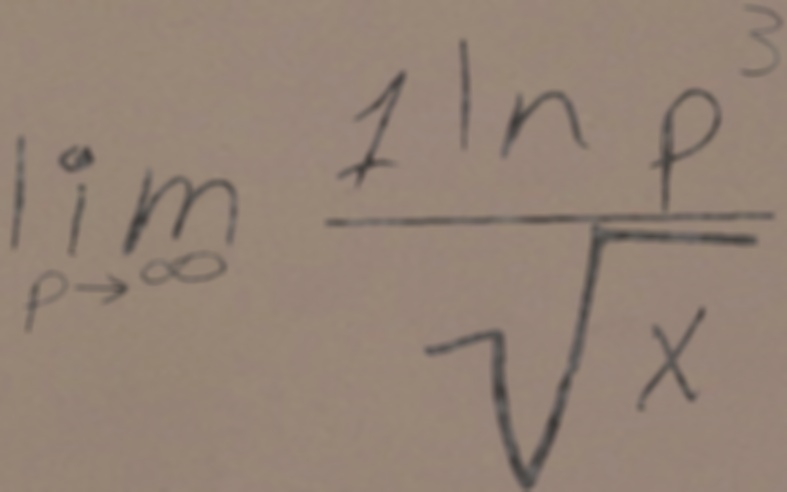 \lim_{p \to \infty} \frac{1 \ln p^3}{\sqrt{x}}